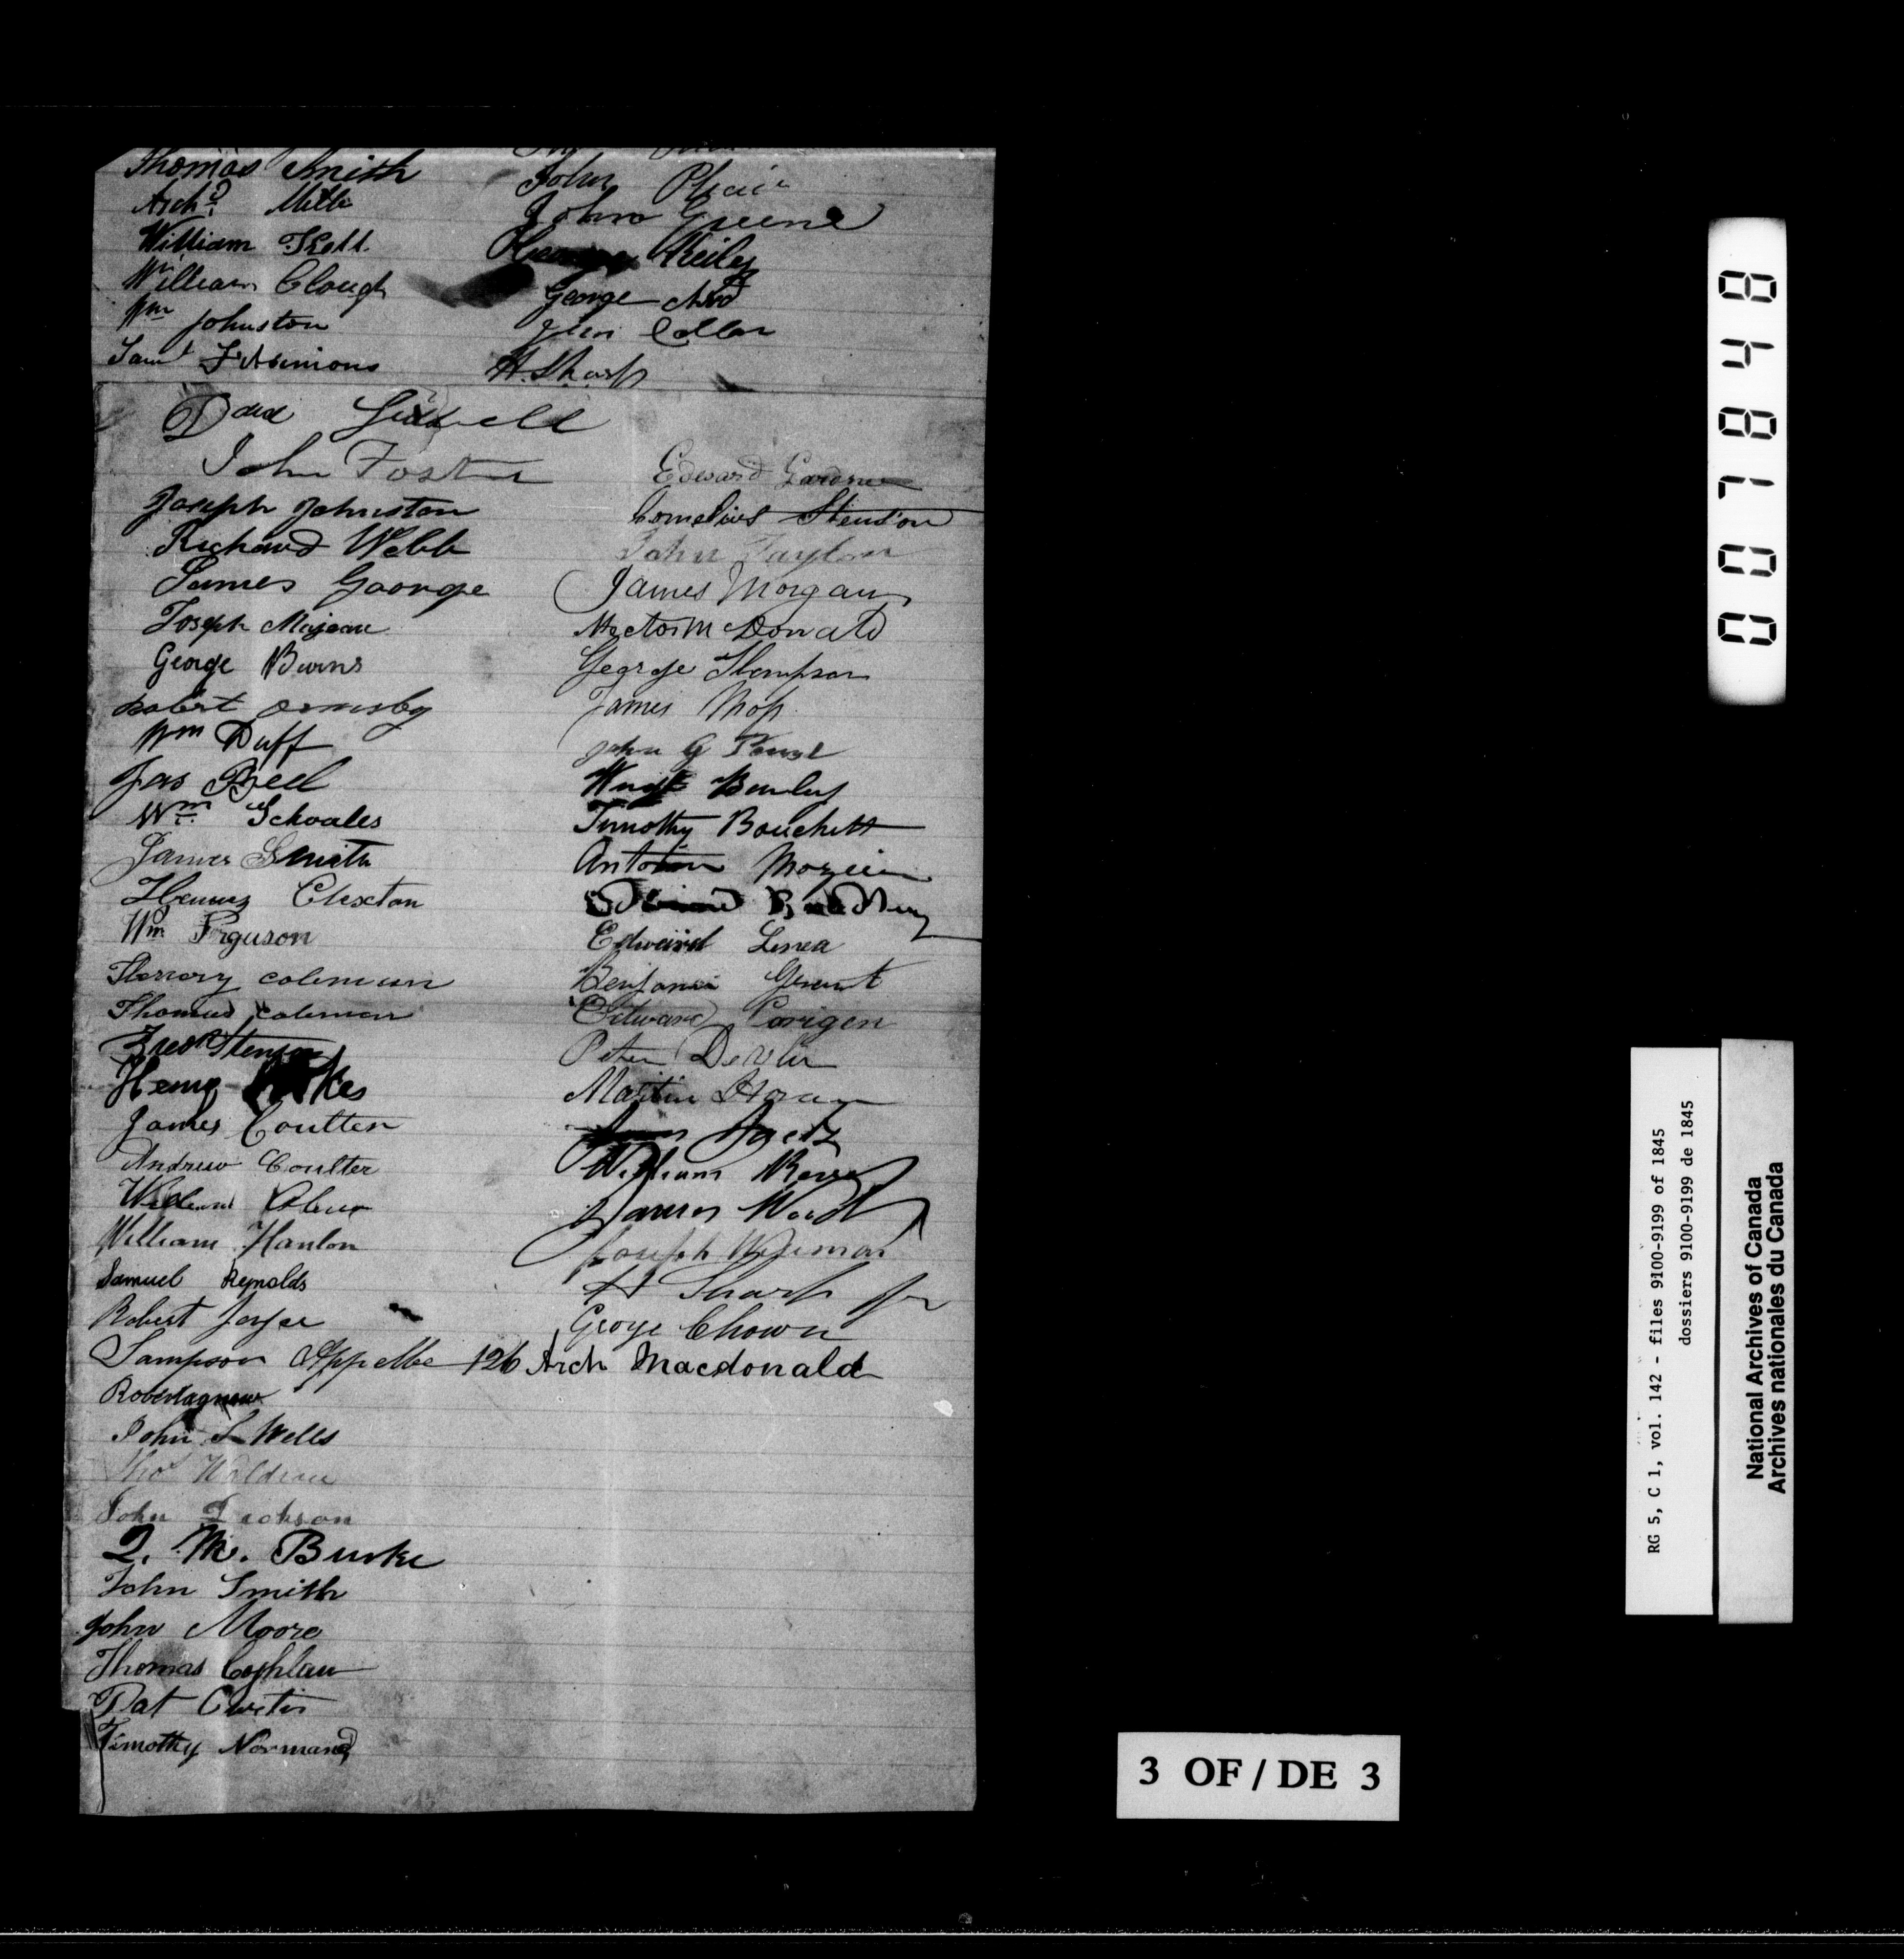 Thomas Smith
Archd Mills
William
William Clough
Wm Johnston
Saml Fitsimions
John
John Greene
Keiley
George
H. Sharp
John Foster
Joseph Johnston
Richard Webb
James Goorge
Joseph
George Burns
Robert Ormsby
Wm Duff
Jas Bell
Wm Schoales
James Smith
Henry Clexton
Wm Ferguson
Henrory coleman
Thomas coleman
Fredk Stenson
Henry
James Coulter
Andrew Coulter
William
William Hanlon
Samuel Reynolds
Robert Joyce
Sampson Appelbe
Robert agnew
John S Wells
Thos Waldron
John Jackson
Q. M. Burke
John Smith
John Moore
Thomas Coghlan
Pat Curtis
Timothy Normand
Edward Gardner
Cornelius Stenson
John Taylor
James Morgan
Hector McDonald
George Thompson
James
John G
Timothy Bouchett
Antoin
Edward
Benjamin
Edward Corigen
Peter Devlin
Martin Horan
William
James Wood
Joseph
H Sharp Jr
George Chown
126 Arch Macdonald
007848
RG 5, C 1, vol. 142 - files 9100-9199 of 1845
dossiers 9100-9199 de 1845
National Archives of Canada
Archives nationales du Canada
3 OF / DE 3